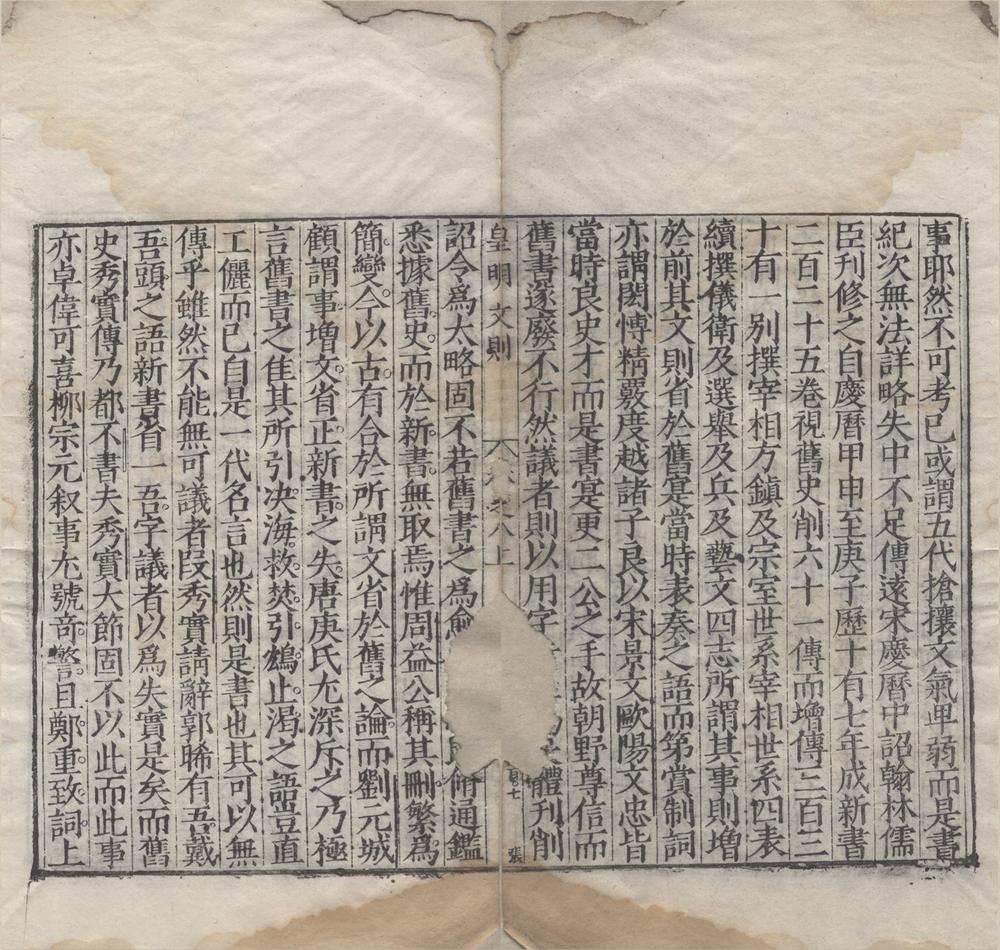 事耶然不可考已或謂五代搶攘文氣卑弱而是書
紀次無法詳略失中不足傳遠宋慶曆中詔翰林儒
臣刊修之自慶曆甲申至庚子歷十有七年成新書
二百二十五卷視舊史削六十一傳而增傳三百三
十有一別撰宰相方鎮及宗室世系宰相世系四表
續撰儀衛及選舉及兵及藝文四志所謂其事則增
於前其文則省於舊寔當時表奏之語而第賞制詞
亦謂閎愽精覈度越諸子良以宋景文歐陽文忠皆
當時良史才而是書寔更二公之手故朝野尊信而
舊書遂廢不行然議者則以用字體刊削
皇明文則
卷之八上
七
張
詔令爲太略固不若舊書之爲脩通鑑
悉據舊史而於新書無取焉惟周益公稱其刪繁爲
簡變今以古有合於所謂文省於舊之論而劉元城
顧謂事增文省正新書之失唐庚氏尤深斥之乃極
言舊書之佳其所引决海救焚引鴆止渴之語豈直
工儷而已自是一代名言也然則是書也其可以無
傳乎雖然不能無可議者段秀實請辭郭晞有吾戴
吾頭之語新書省一吾字議者以爲失實是矣而舊
史秀實傳乃都不書夫秀實大節固不以此而此事
亦卓偉可喜柳宗元叙事尤號奇警且鄭重致詞上